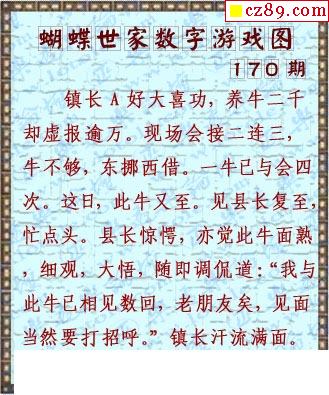 cz89.com
蝴蝶世家数字游戏图
170期
镇长A好大喜功，养牛二千
却虚报逾万。现场会接二连三，
牛不够，东挪西借。一牛已与会四
次。这日，此牛又至。见县长复至，
忙点头。县长惊愕，亦觉此牛面熟
，细观，大悟，随即调侃道：“我与
此牛已相见数回，老朋友矣，见面
当然要打招呼。”镇长汗流满面。